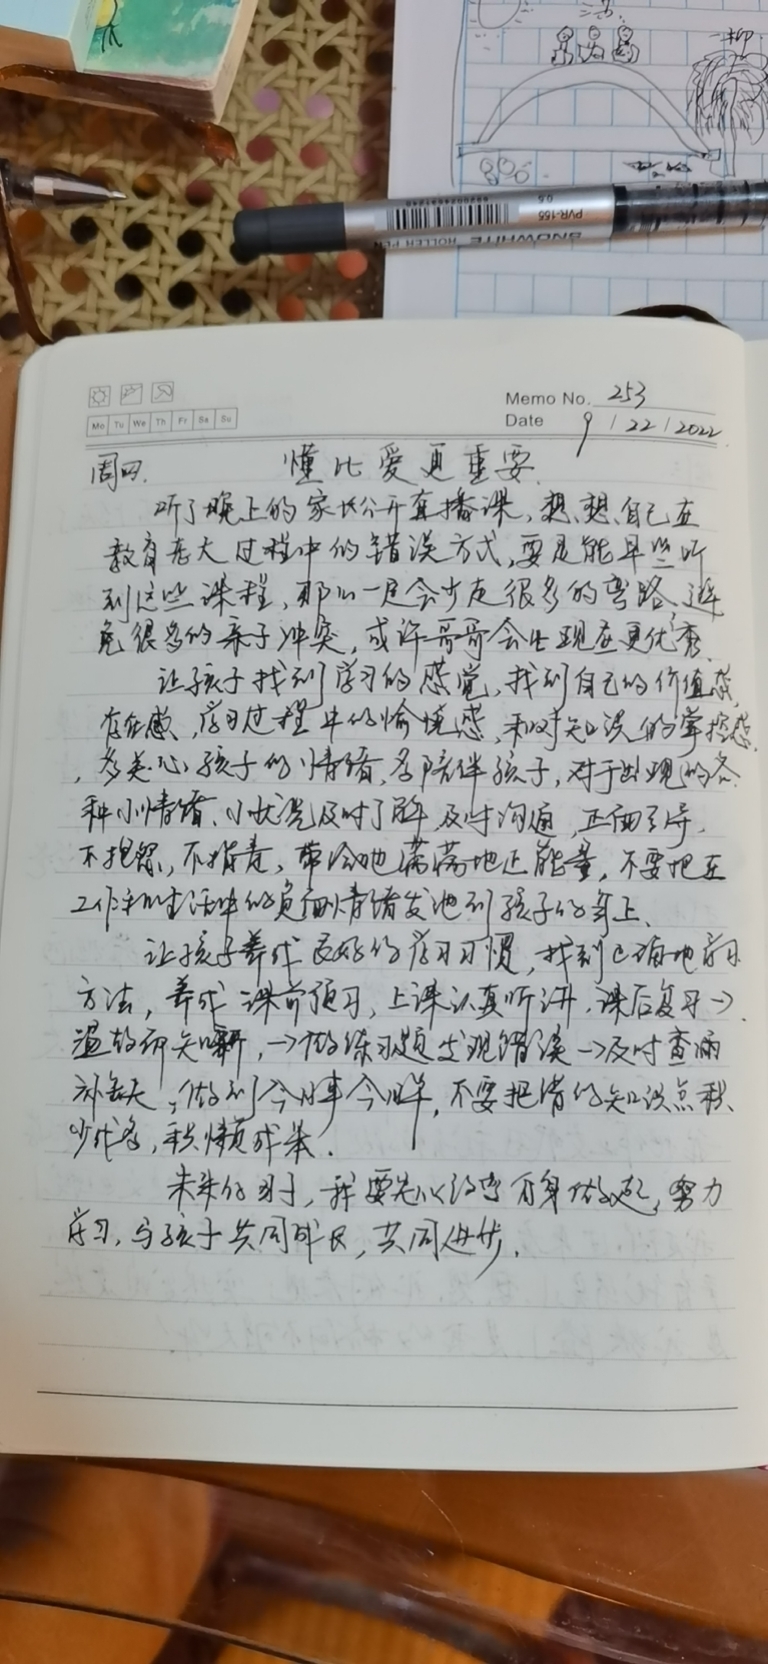 三苏
柳
PVR-155
0.5
SNOWHITE ROLLER PEN
Memo No. 253
Mo Tu We Th Fr Sa Su
Date 9 / 22 / 2022
周四. 懂比爱更重要.
听了晚上的家长公开直播课,想想自己在
教育老大过程中的错误方式,要是能早些听
到这些课程,那么一定会少走很多的弯路,避
免很多的亲子冲突,或许哥哥会比现在更优秀.
让孩子找到学习的感觉,找到自己的价值感,
存在感,学习过程中的愉悦感,和对知识的掌控感.
,多关心孩子的情绪,多陪伴孩子,对于出现的各
种小情绪、小状况及时了解,及时沟通,正面引导,
不抱怨,不指责,带给他满满地正能量,不要把在
工作和生活中的负面情绪发泄到孩子的身上.
让孩子养成良好的学习习惯,找到正确地学习
方法,养成课前预习,上课认真听讲,课后复习→
温故而知新,→做练习题发现错误→及时查漏
补缺,做到今日事今日毕,不要把错的知识点积
少成多,积懒成笨.
未来的日子,我要先从改变自身做起,努力
学习,与孩子共同成长,共同进步.